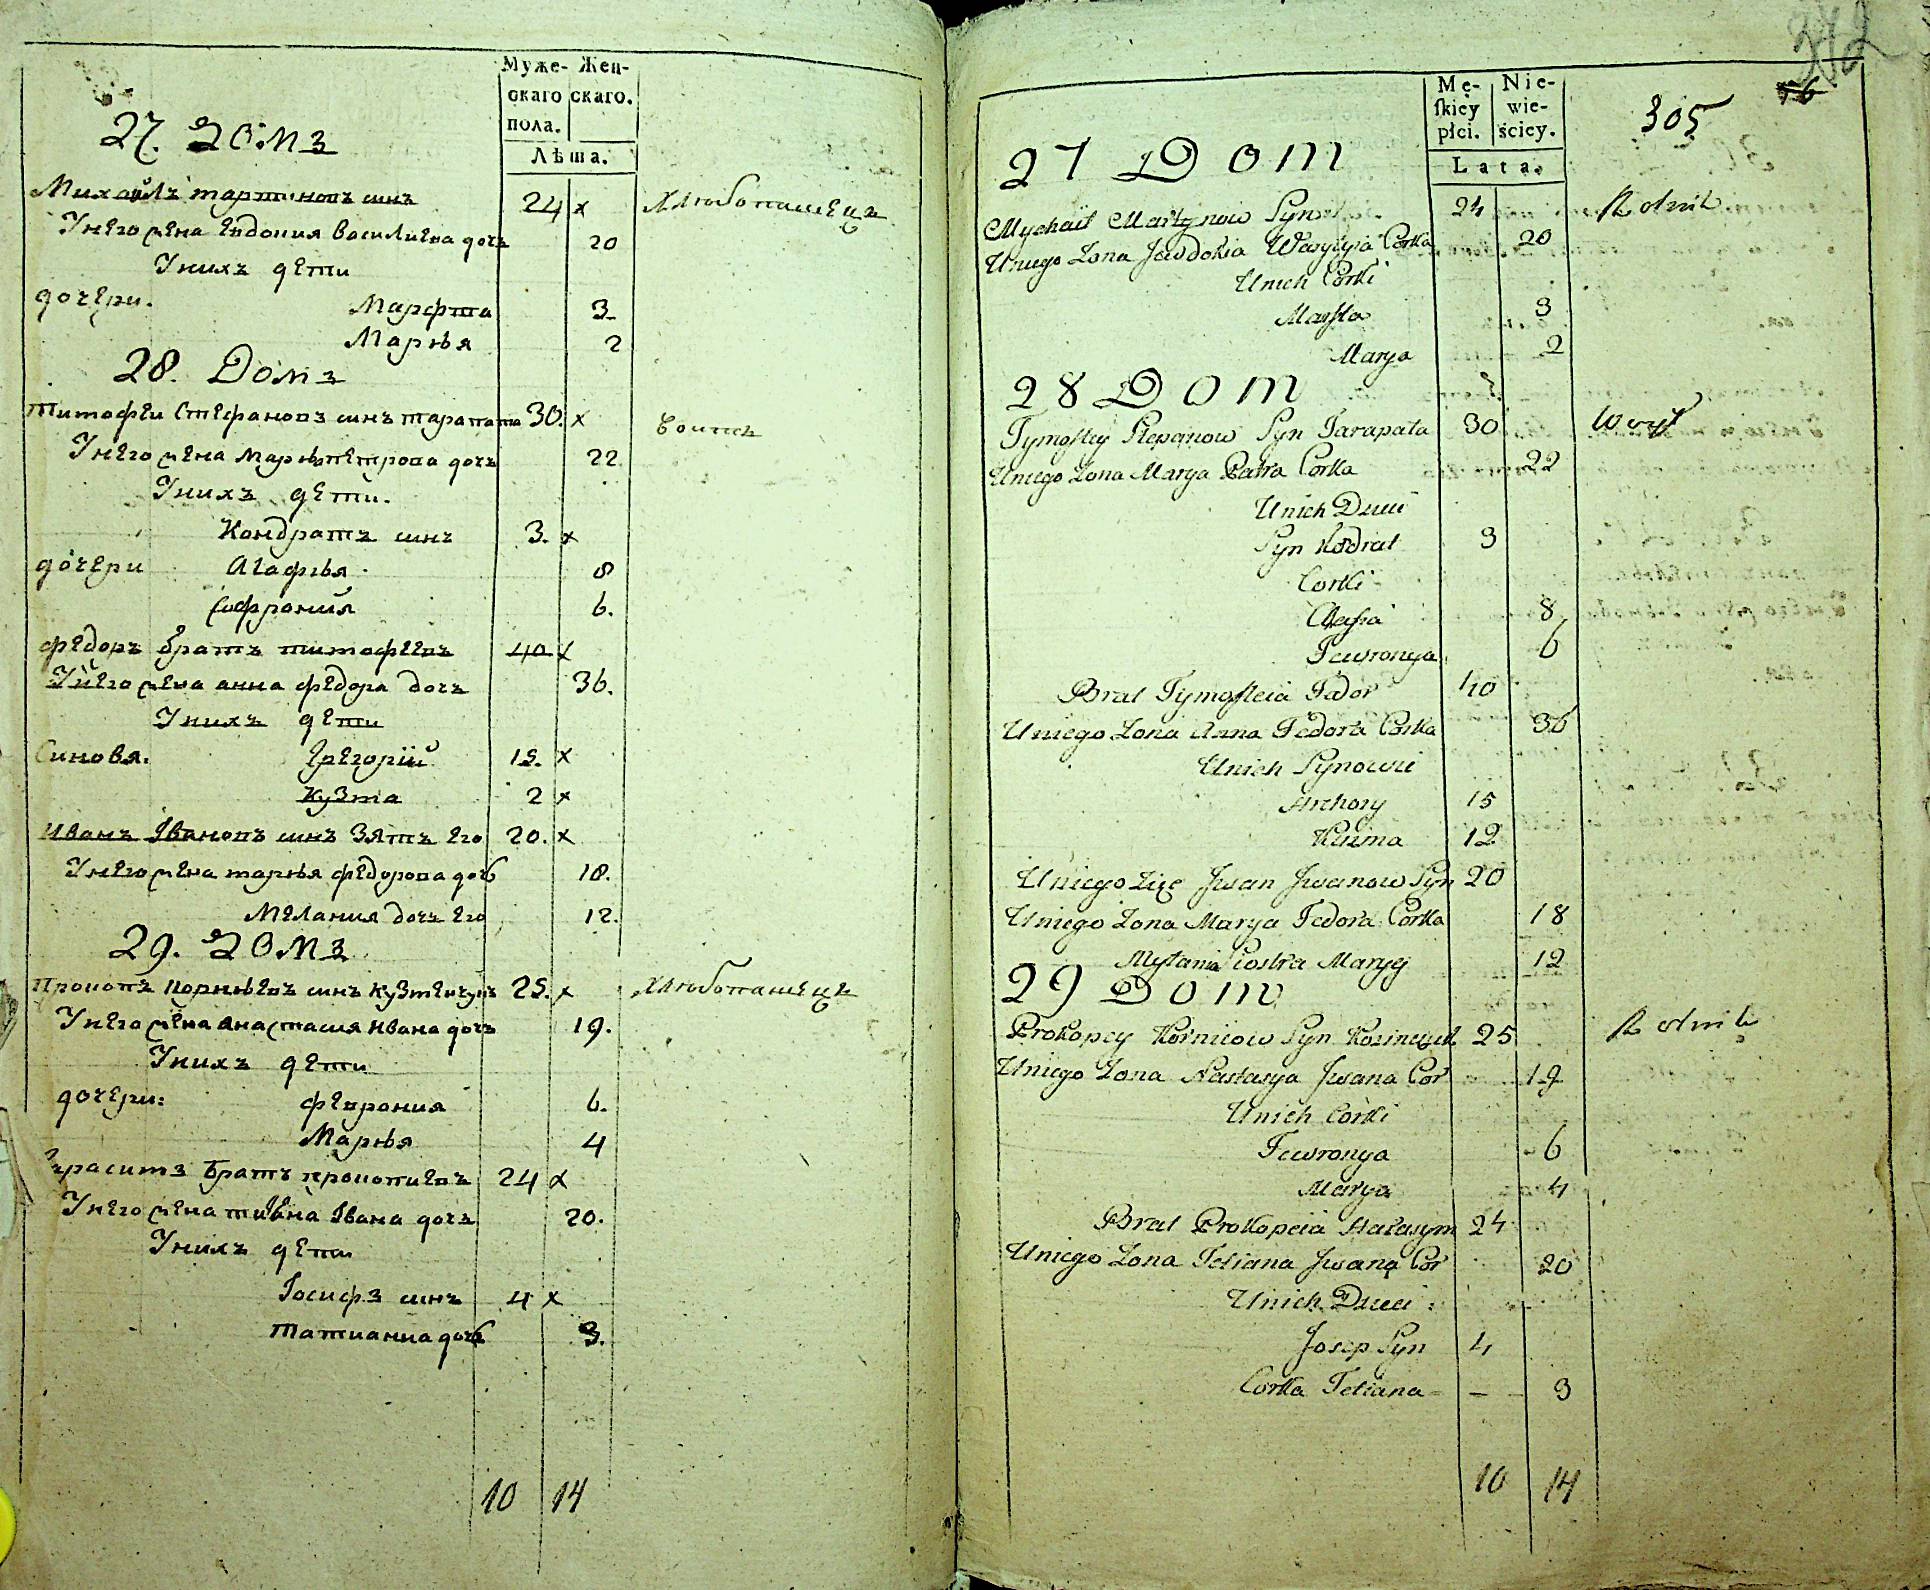 Муже- Жен-
скаго скаго.
пола.
Лѣта.
27. Домъ
Михайлъ мартиновъ синъ 24 x Хлѣбопашецъ
У него жена Евдокия василиева дочь 20
У нихъ дети
дочери. Марфта 3
Марья 2
28. Домъ
тимофеи Стефановъ синъ тарапата 30. x воитъ
У него жена Марья петрова дочь 22
У нихъ дети.
Кондратъ синъ 3. x
дочери Агафья 8
6.
федоръ братъ тимофеевъ 40 x
У него жена анна федора дочь 36.
У нихъ дети
Синовя. Григорий 15. x
Кузма 2 x
Иванъ Ивановъ синъ Зятъ его 20. x
У него жена марья федорова дочь 18.
Мелания дочь его 12.
29. Домъ
Прокопъ Корнѣевъ синъ кузменчукъ 25. x Хлѣбопашецъ
У него жена анастасия Ивана дочь 19.
У нихъ дети
дочери: феврония 6.
Марья 4
Герасимъ братъ прокопиевъ 24 x
У него жена Ивана дочь 20.
У нихъ дети
Іосифъ синъ 4 x
татианна дочь 3.
10 14
372
56
305
Mę- Nie-
skiey wie-
płci. ściey.
Lata.
27 Dom
Mychaił Martynow Syn 24 Rolnik
Uniego Żona Jewdokia Wasylyia Corka 20
Unich Corki
Marfta 3
Marya 2
28 Dom
Tymoftey Stepanow Syn Tarapata 30 Woyt
Uniego Żona Marya Petra Corka 22
Unich Dzieci
Syn Kodrat 3
Corki
8
Fewronya 6
Brat Tymofteia Fedor 40
Uniego Żona Anna Fedora Corka 36
Unich Synowie
Hrehory 15
Kuzma 12
Uniego Zięc Jwan Jwanow Syn 20
Uniego Żona Marya Fedora Corka 18
Mylania Siostra Maryy 12
29 Dom
Prokopey Kornieow Syn Kozmczuk 25 Rolnik
Uniego Żona Nastasya Jwana Cor 19
Unich Corki
Fewronya 6
Marya 4
Brat Prokopeia Harasym 24
Uniego Żona Tetiana Jwana Cor 20
Unich Dzieci
Josep Syn 4
Corka Tetiana - — - 3
10 14